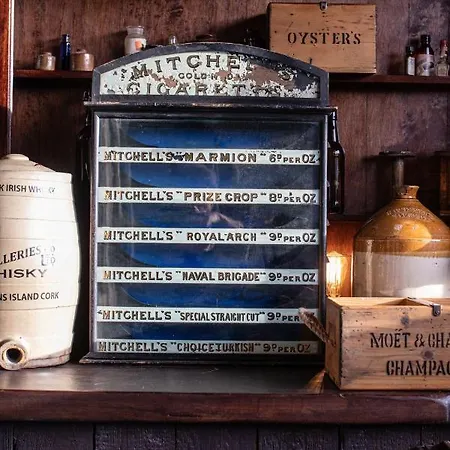 OYSTER'S
MITCHE
GOLD
CIGARET
MITCHELL'S "MARMION" 6D PER OZ
MITCHELL'S "PRIZE CROP" 8D PER OZ
MITCHELL'S "ROYAL ARCH" 9D PER OZ
MITCHELL'S "NAVAL BRIGADE" 9D PER OZ
MITCHELL'S "SPECIAL STRAIGHT CUT" 9D PER OZ
MITCHELL'S "CHOICE TURKISH" 9D PER OZ
RK IRISH WHISKY
LLERIES CO LD
HISKY
NS ISLAND CORK
MOËT & CHA
CHAMPAG